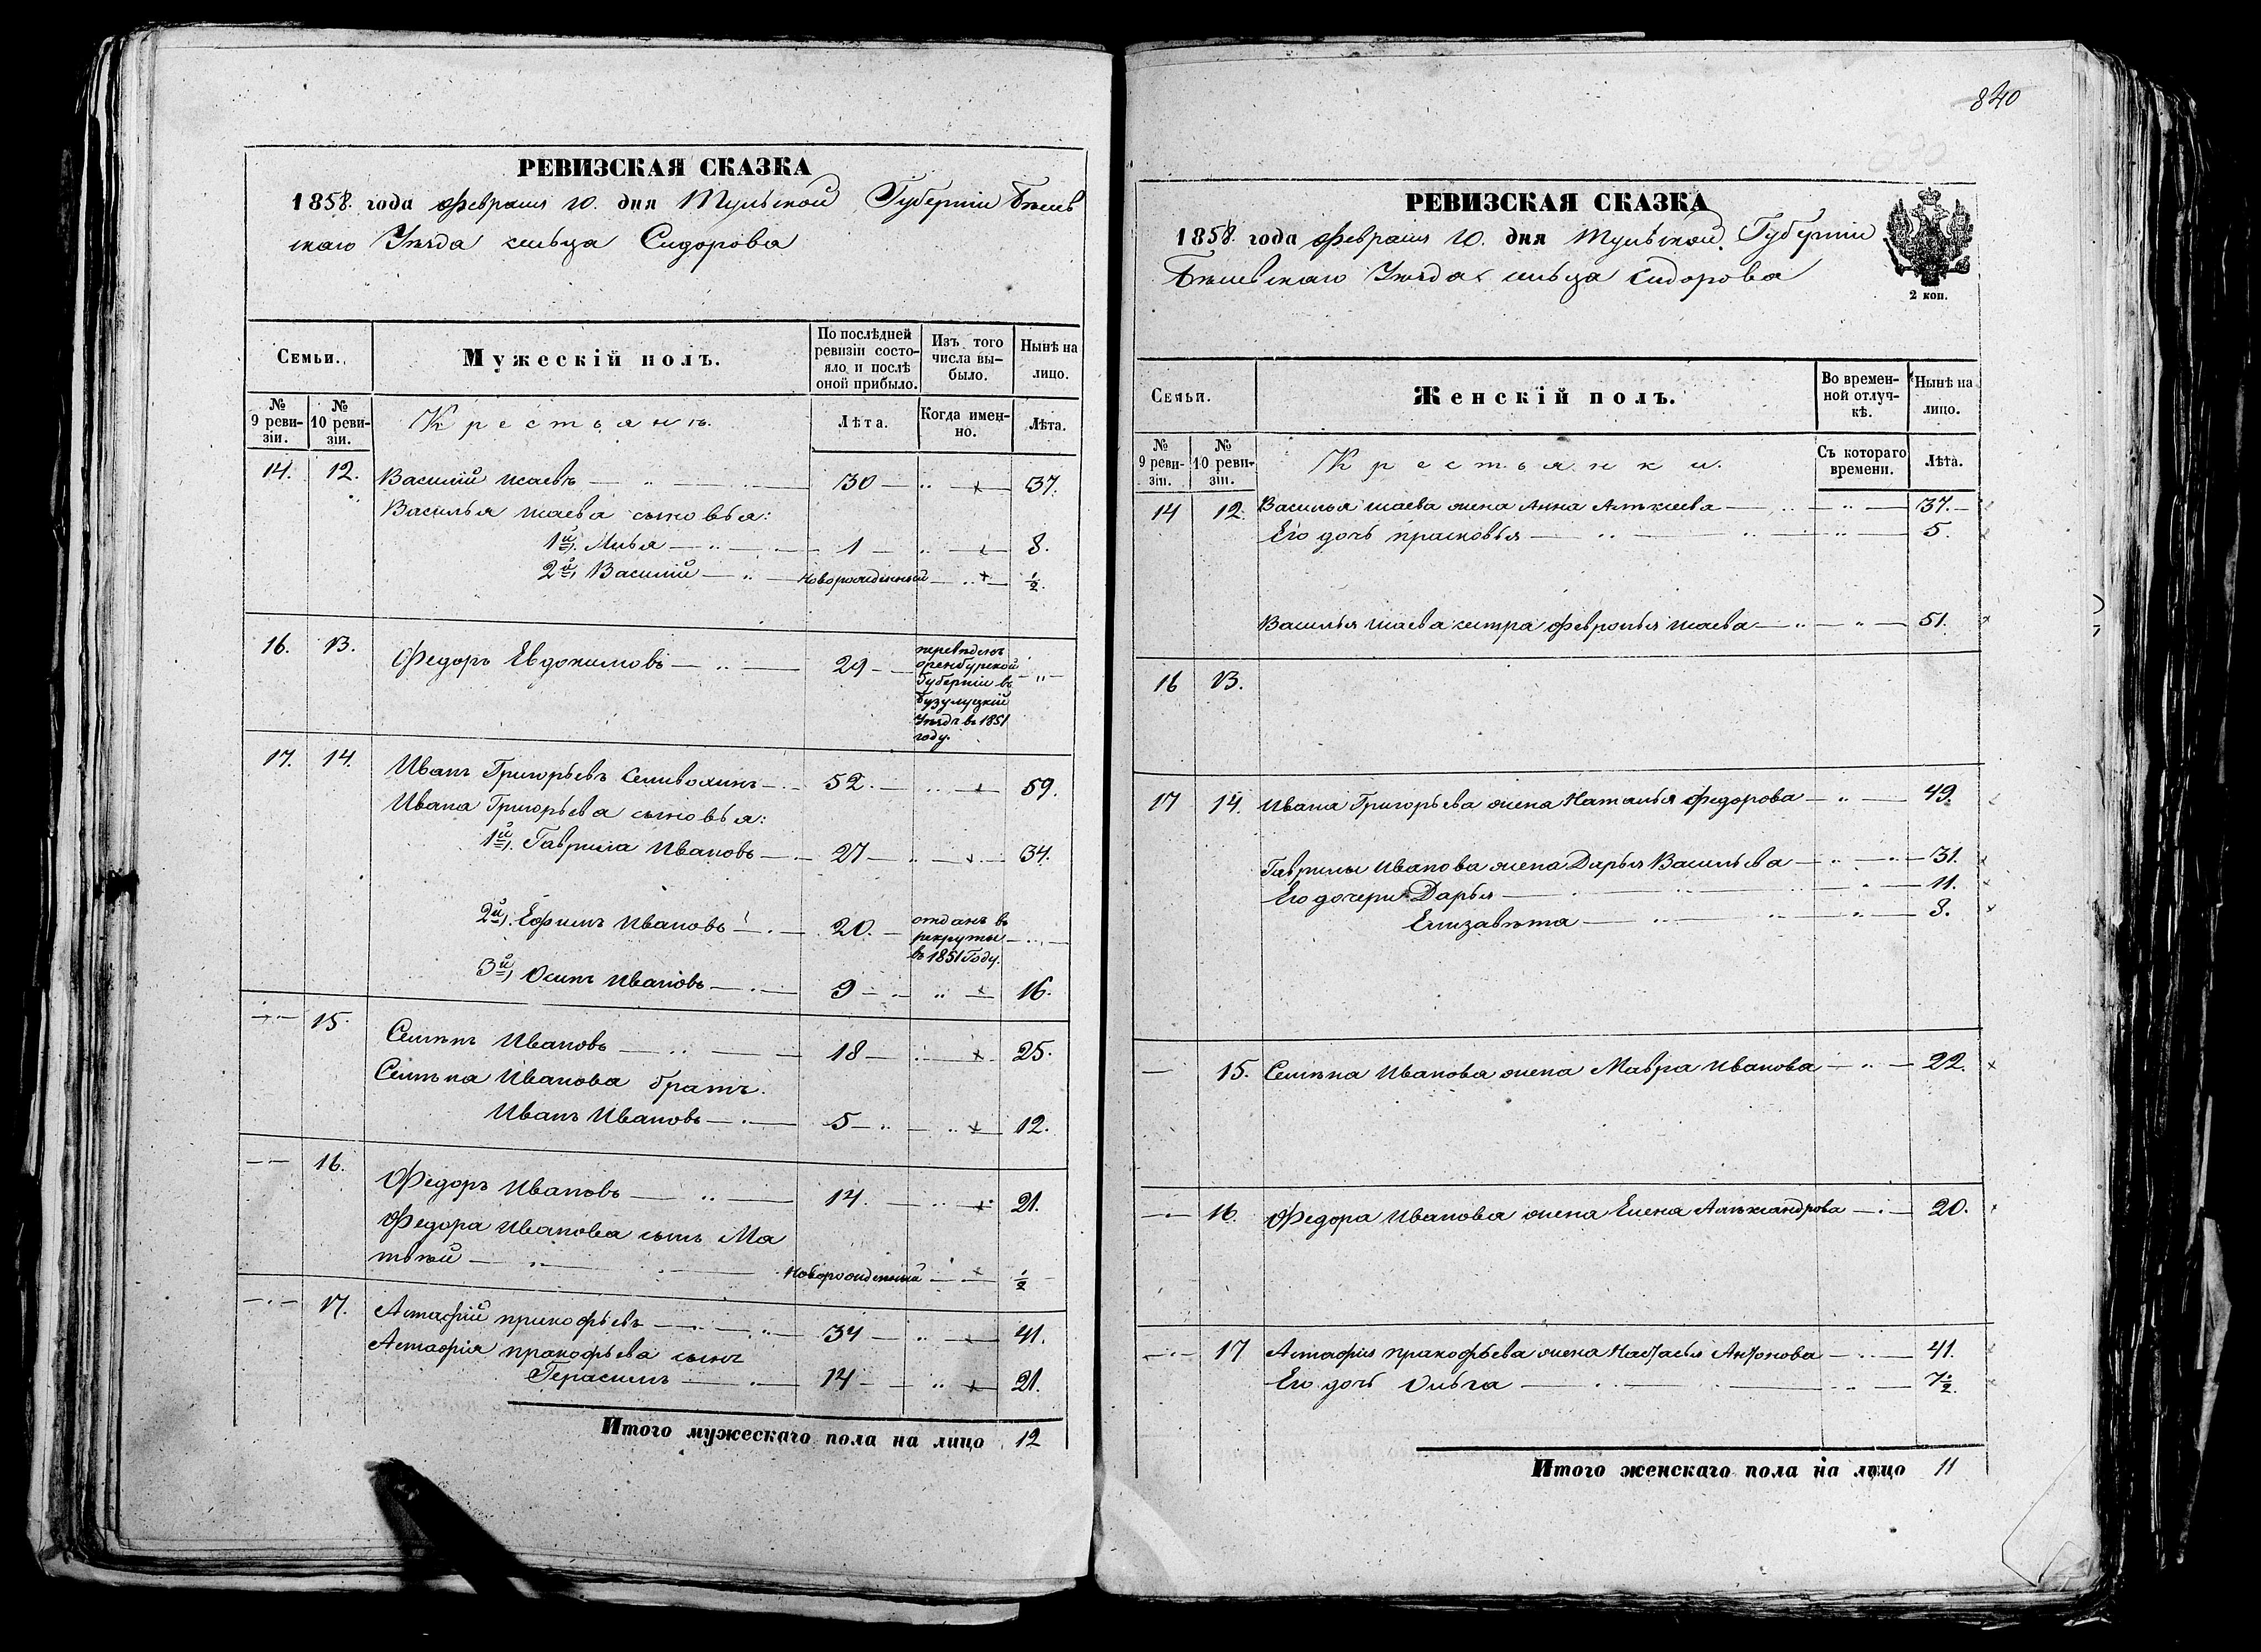 РЕВИЗСКАЯ СКАЗКА
1858. года Февраля 10. дня Тульской Губерніи Бѣлев
скаго Уѣзда сельца Сидорова
Семьи.
Мужескій полъ.
По послѣдней ревизіи состояло и послѣ оной прибыло.
Изъ того числа выбыло.
Нынѣ на лицо.
№ 9 ревизіи.
№ 10 ревизіи.
Крестьянъ.
Лѣта.
Когда именно.
Лѣта.
14. 12. Василий исаевъ — 30 — " — 37.
Василья исаева сыновья:
1й. Илья — 1 — 8.
2й, Василий — новорожденный — ½.
16. 13. Федоръ Евдокимовъ — 29 — переведенъ
оренбурской
Губерніи въ
Бузулуцкій
Уѣздъ въ 1851
году.
17. 14. Иванъ Григорьевъ Селивохинъ — 52. — 59.
Ивана Григорьева сыновья:
1й. Гаврила Ивановъ — 27 — 34.
2й. Ефимъ Ивановъ — 20. — отданъ въ
рекруты
въ 1851 Году.
3й, Осипъ Ивановъ — 9 — 16.
15. Семенъ Ивановъ — 18 — 25.
Семена Иванова братъ.
Иванъ Ивановъ — 5 — 12.
16. Федоръ Ивановъ — 14. — 21.
Федора Иванова сынъ Ма
твѣй — новорожденный — ½
17. Астафій прокофьевъ — 34 — 41.
Астафія пракофьева сынъ
Герасимъ — 14 — 21.
Итого мужескаго пола на лицо 12
840
РЕВИЗСКАЯ СКАЗКА
1858. года Февраля 10. дня Тульской Губерніи
Бѣлевскаго Уѣзда сельца Сидорова
2 коп.
Семьи.
Женскій полъ.
Во временной отлучкѣ.
Нынѣ на лицо.
№ 9 ревизіи.
№ 10 ревизіи.
Крестьянки.
Съ котораго времени.
Лѣта.
14 12. Василья исаева жена Анна Алексеева — 37.
Его дочь прасковья — 5.
Василья исаева сестра Февронья исаева — 51.
16 13.
17 14. Ивана Григорьева жена Наталья Федорова — 49.
Гаврилы Иванова жена Дарья Васильева — 31.
Его дочери Дарья — 11.
Елизавета — 8.
15. Семена Иванова жена Мавра Иванова — 22.
16. Федора Иванова жена Елена Александрова — 20.
17 Астафия пракофьева жена Настасья Антонова — 41.
Его дочь Ольга — 7½.
Итого женскаго пола на лицо 11